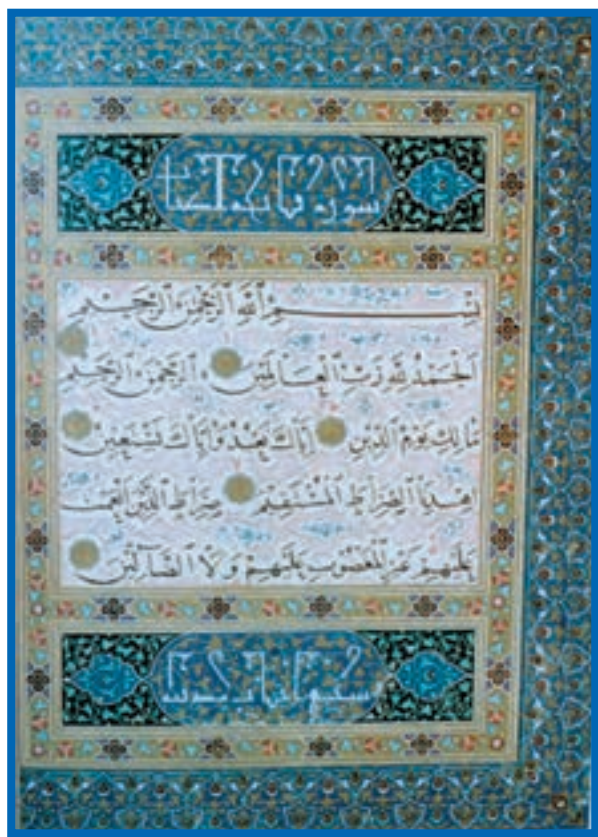 سورة فاتحة الكتاب
بِسْمِ ٱللَّهِ ٱلرَّحْمَٰنِ ٱلرَّحِيمِ
ٱلْحَمْدُ لِلَّهِ رَبِّ ٱلْعَالَمِينَ ٱلرَّحْمَٰنِ ٱلرَّحِيمِ
مَالِكِ يَوْمِ ٱلدِّينِ إِيَّاكَ نَعْبُدُ وَإِيَّاكَ نَسْتَعِينُ
ٱهْدِنَا ٱلصِّرَاطَ ٱلْمُسْتَقِيمَ صِرَاطَ ٱلَّذِينَ أَنْعَمْتَ
عَلَيْهِمْ غَيْرِ ٱلْمَغْضُوبِ عَلَيْهِمْ وَلَا ٱلضَّآلِّينَ